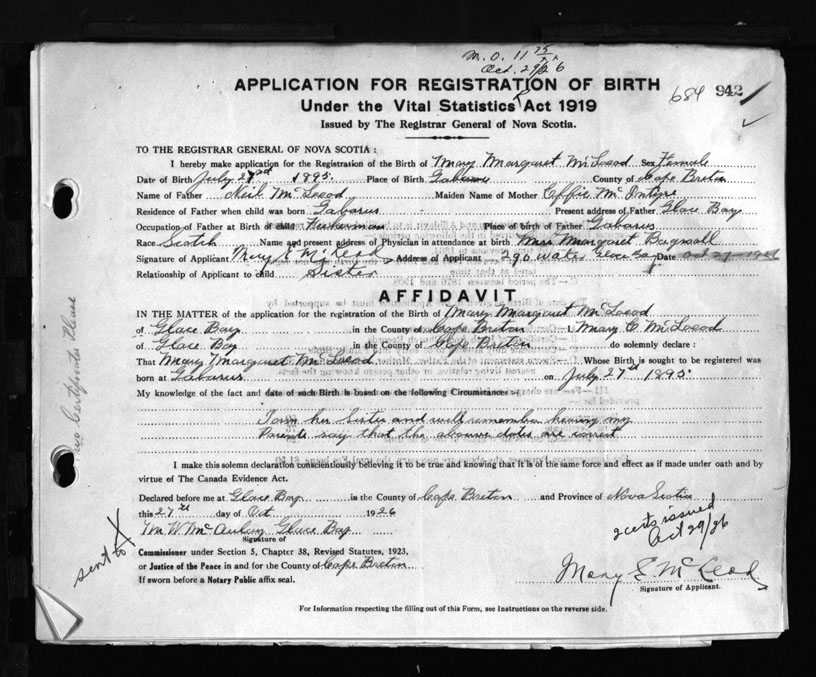 M.O. 11 75
Oct. 29/26
APPLICATION FOR REGISTRATION OF BIRTH
684 942
Under the Vital Statistics Act 1919
Issued by The Registrar General of Nova Scotia.
TO THE REGISTRAR GENERAL OF NOVA SCOTIA:
I hereby make application for the Registration of the Birth of Mary Margaret McLeod Sex Female
Date of Birth July 27 1895 Place of Birth Gabarus County of Cape Breton
Name of Father Neil McLeod Maiden Name of Mother Effie McIntyre
Residence of Father when child was born Gabarus Present address of Father Glace Bay
Occupation of Father at Birth of child Fisherman Place of birth of Father Gabarus
Race Scotch Name and present address of Physician in attendance at birth Mrs Margaret Bagnall
Signature of Applicant Mary E McLeod Address of Applicant 296 Water Glace Bay Date
Relationship of Applicant to child Sister
AFFIDAVIT
IN THE MATTER of the application for the registration of the Birth of Mary Margaret McLeod
of Glace Bay in the County of Cape Breton I, Mary C McLeod
of Glace Bay in the County of Cape Breton do solemnly declare:
That Mary Margaret McLeod Whose Birth is sought to be registered was
born at Gabarus on July 27th 1895
My knowledge of the fact and date of such Birth is based on the following Circumstances:-
I am her Sister and well remember hearing my
Parents say that the above dates are correct
I make this solemn declaration conscientiously believing it to be true and knowing that it is of the same force and effect as if made under oath and by
virtue of The Canada Evidence Act.
Declared before me at Glace Bay in the County of Cape Breton and Province of Nova Scotia
this 27th day of Oct 1926
2 certs issued
Oct 29/26
W McAulay Glace Bay
Signature of
sent to X
Commissioner under Section 5, Chapter 38, Revised Statutes, 1923,
or Justice of the Peace in and for the County of Cape Breton
If sworn before a Notary Public affix seal.
Mary E. McLeod
Signature of Applicant.
For Information respecting the filling out of this Form, see Instructions on the reverse side.
Two Certificates Please